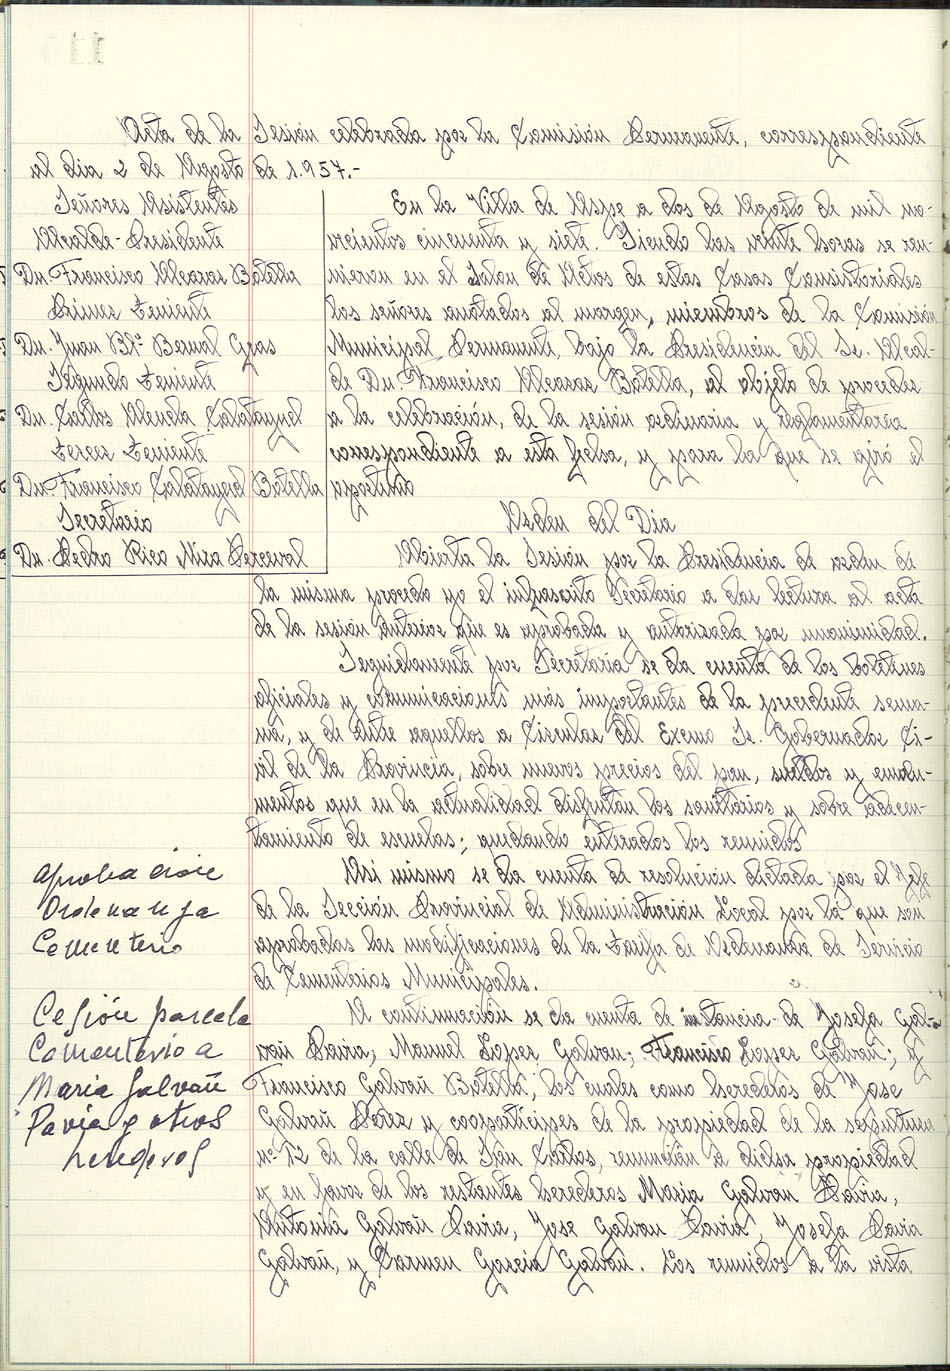 Acta de la Sesión celebrada por la Comisión Permanente, correspondiente
al dia 2 de Agosto de 1.957.-
Señores Asistentes
Alcalde-Presidente
Dn. Francisco Alcaraz Botella
Primer Teniente
Dn. Juan Btª Bernal Gras
Segundo Teniente
Dn. Carlos Alenda Calatayud
Tercer Teniente
Dn. Francisco Calatayud Botella
Secretario
Dn. Pedro Rico Mira Perceval
En la Villa de Aspe a dos de Agosto de mil no-
vecientos cincuenta y siete. Siendo las veinte horas se reu-
nieron en el Salon de Actos de estas Casas Consistoriales
los señores anotados al margen, miembros de la Comisión
Municipal Permanente, bajo la Presidencia del Sr. Alcal-
de Dn. Francisco Alcaraz Botella, al objeto de proceder
a la celebración, de la sesión ordinaria y reglamentaria
correspondiente a esta fecha, y para la que se giró el
oportuno
Orden del Dia
Abierta la Sesión por la Presidencia de orden de
la misma procedo yo el infrascrito Secretario a dar lectura al acta
de la sesión anterior que es aprobada y autorizada por unanimidad.
Seguidamente por Secretaria se da cuenta de los boletines
oficiales y comunicaciones más importantes de la precedente sema-
na, y de entre aquellos a Circular del Excmo Sr. Gobernador Ci-
vil de la Provincia, sobre nuevos precios del pan, sueldos y emolu-
mentos que en la actualidad disfrutan los sanitarios y sobre adecen-
tamiento de escuelas; quedando enterados los reunidos
Asi mismo se da cuenta de resolución dictada por el Jefe
de la Sección Provincial de Administración Local por la que son
aprobadas las modificaciones de la Tarifa de Ordenanza de Servicio
de Cementerios Municipales.
A continuación se da cuenta de instancia de Josefa Gal-
vañ Pavia, Manuel Lopez Galvañ; Francisco Lopez Galvañ; y
Francisco Galvañ Botella, los cuales como herederos de Jose
Galvañ Perez y coopartícipes de la propiedad de la sepultura
nº 12 de la calle de San Carlos, renuncian a dicha propiedad
y en favor de los restantes herederos Maria Galvañ Pavia,
Antonia Galvañ Pavia, Jose Galvañ Pavia, Josefa Pavia
Galvañ, y Carmen Garcia Galvañ. Los reunidos a la vista
aprobacion
Ordenanza
Cementerio
Cesión parcela
Cementerio a
Maria Galvañ
Pavia y otros
herederos